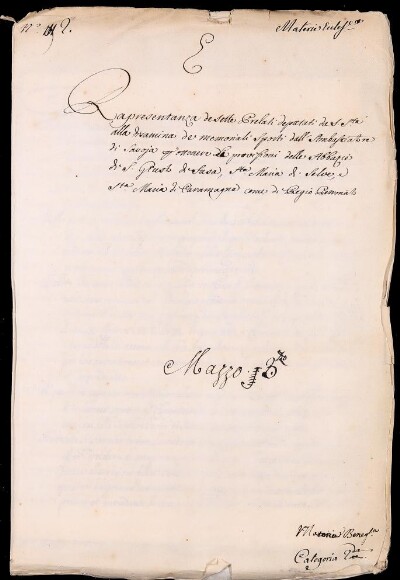 N.° 2.
Materie Eccles.che
E
Rapresentanza de sette Prelati deputati da S. S.tà
alla disamina de memoriali sporti dall'Ambasciatore
di Savoja per ottenere le provisioni delle Abbazie
di S. Giusto di Susa, S.ta Maria di Selve, e
S.ta Maria di Caramagna come di Regio Patronato
Mazzo 3.zo
Materie Benef.rie
Categoria 2.da